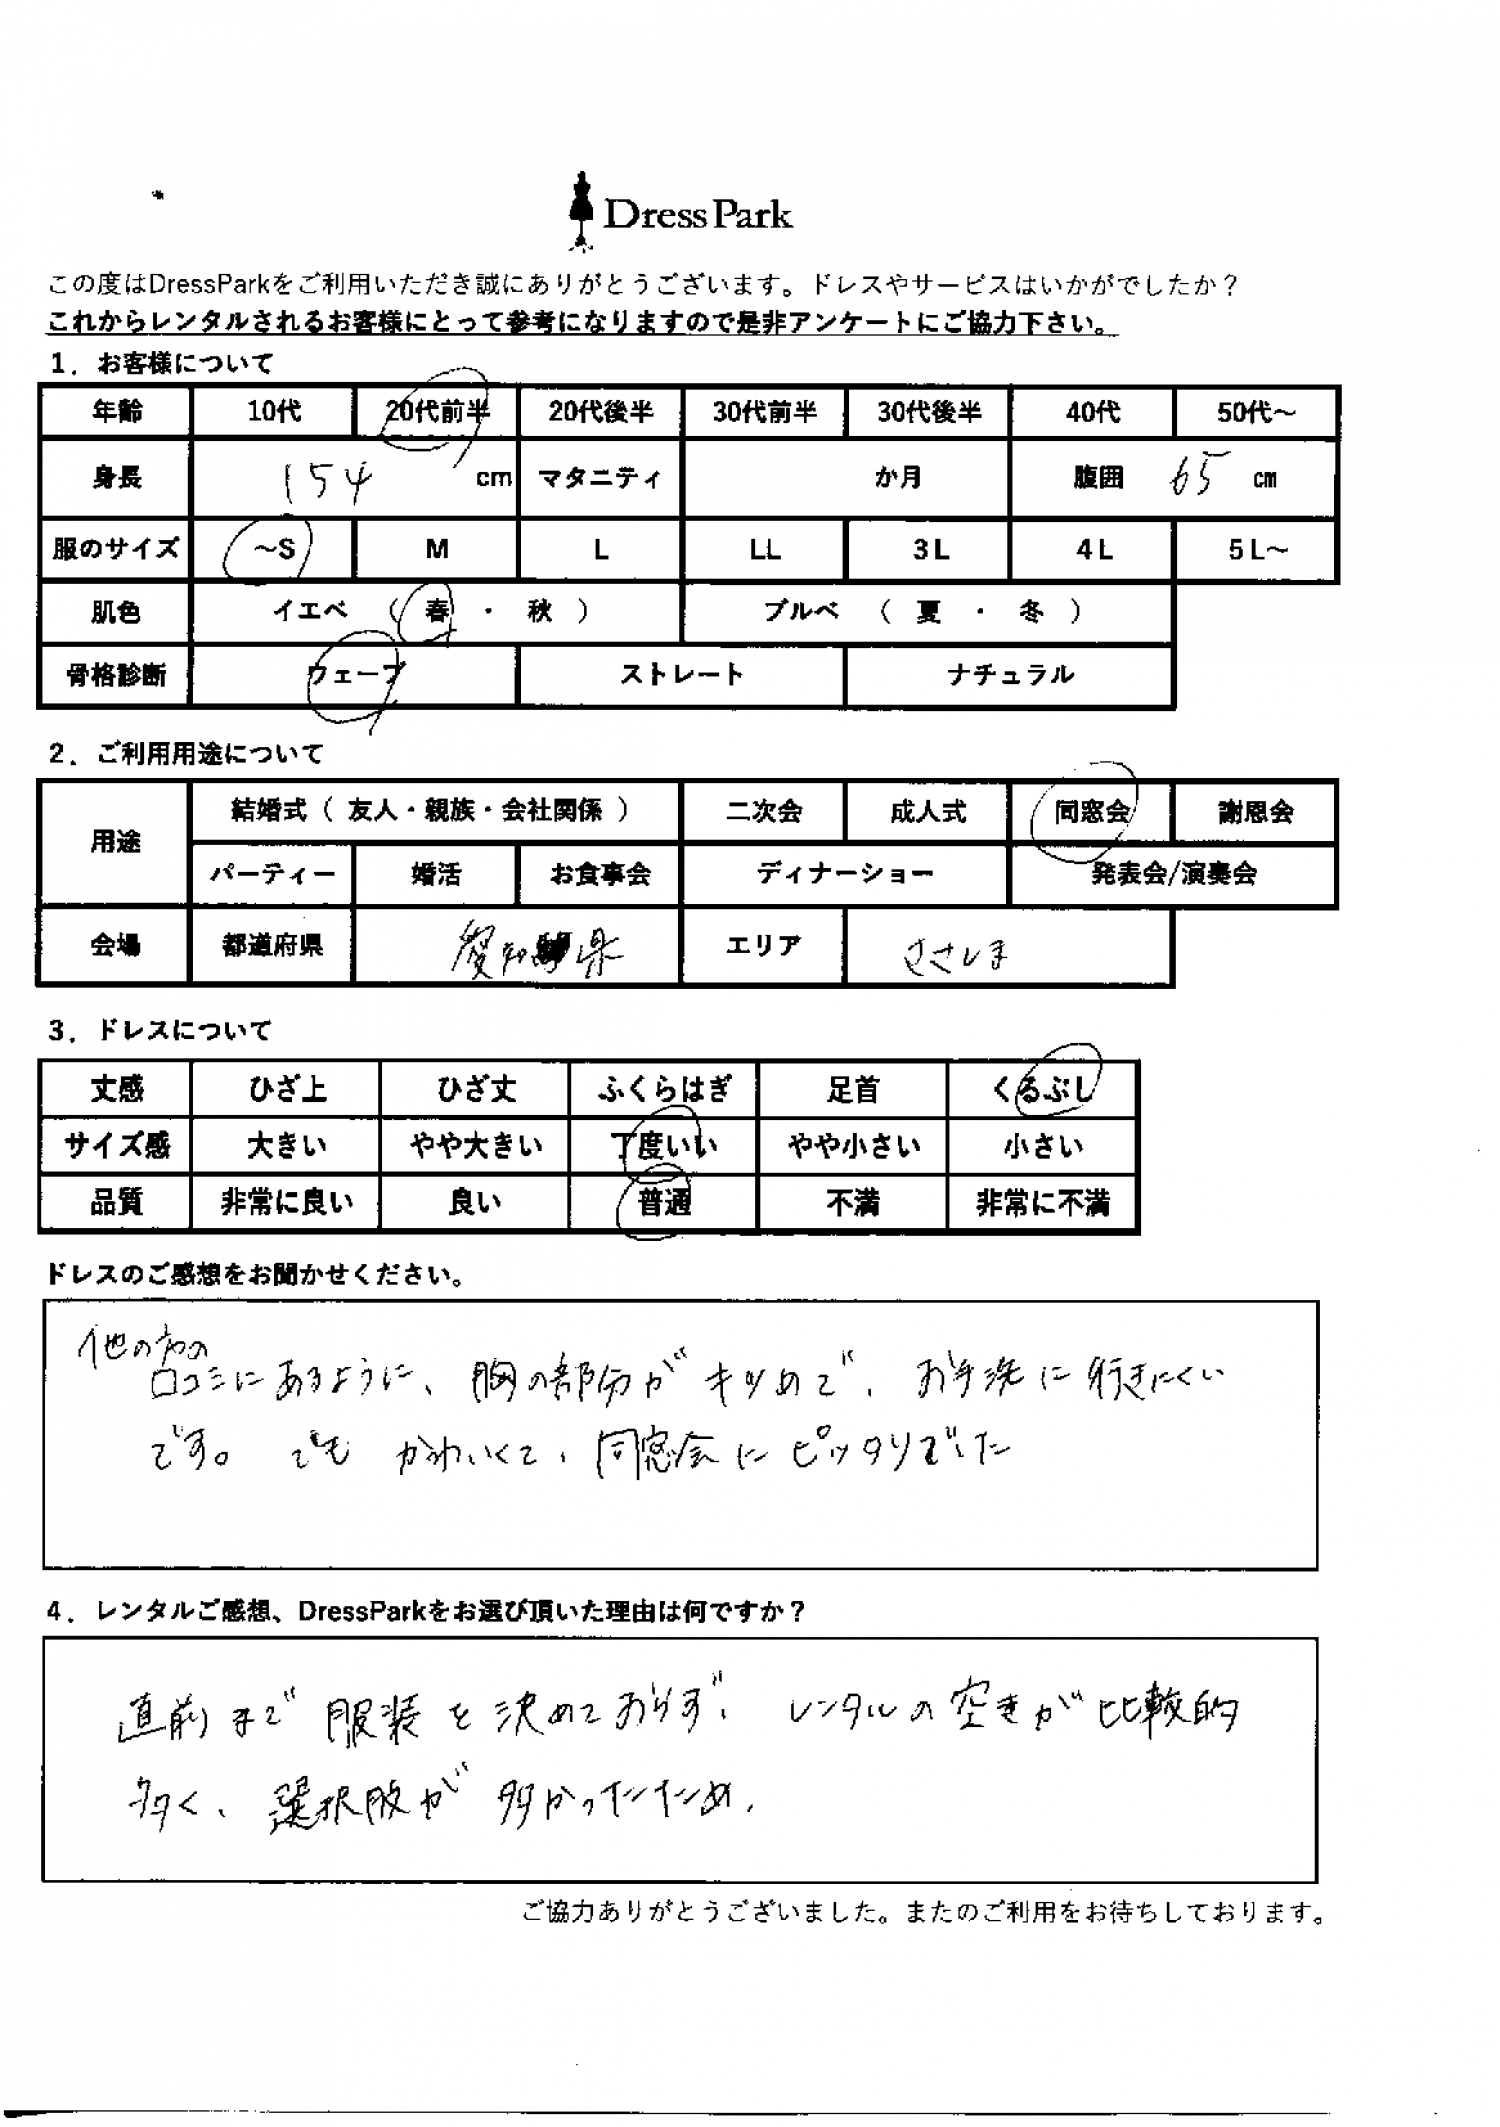 Dress Park
この度はDressParkをご利用いただき誠にありがとうございます。ドレスやサービスはいかがでしたか？
これからレンタルされるお客様にとって参考になりますので是非アンケートにご協力下さい。
1．お客様について
年齢 10代 20代前半 20代後半 30代前半 30代後半 40代 50代～
身長 154 cm マタニティ か月 腹囲 65 cm
服のサイズ ～S M L LL 3L 4L 5L～
肌色 イエベ （ 春 ・ 秋 ） ブルベ （ 夏 ・ 冬 ）
骨格診断 ウェーブ ストレート ナチュラル
2．ご利用用途について
用途 結婚式（ 友人・親族・会社関係 ） 二次会 成人式 同窓会 謝恩会
パーティー 婚活 お食事会 ディナーショー 発表会/演奏会
会場 都道府県 愛知県 エリア ささしま
3．ドレスについて
丈感 ひざ上 ひざ丈 ふくらはぎ 足首 くるぶし
サイズ感 大きい やや大きい 丁度いい やや小さい 小さい
品質 非常に良い 良い 普通 不満 非常に不満
ドレスのご感想をお聞かせください。
他の方の
口コミにあるように、胸の部分がキツめで、お手洗に行きにくい
です。でもかわいくて、同窓会にピッタリでした
4．レンタルご感想、DressParkをお選び頂いた理由は何ですか？
直前まで服装を決めておらず、レンタルの空きが比較的
多く、選択肢が多かったため、
ご協力ありがとうございました。またのご利用をお待ちしております。